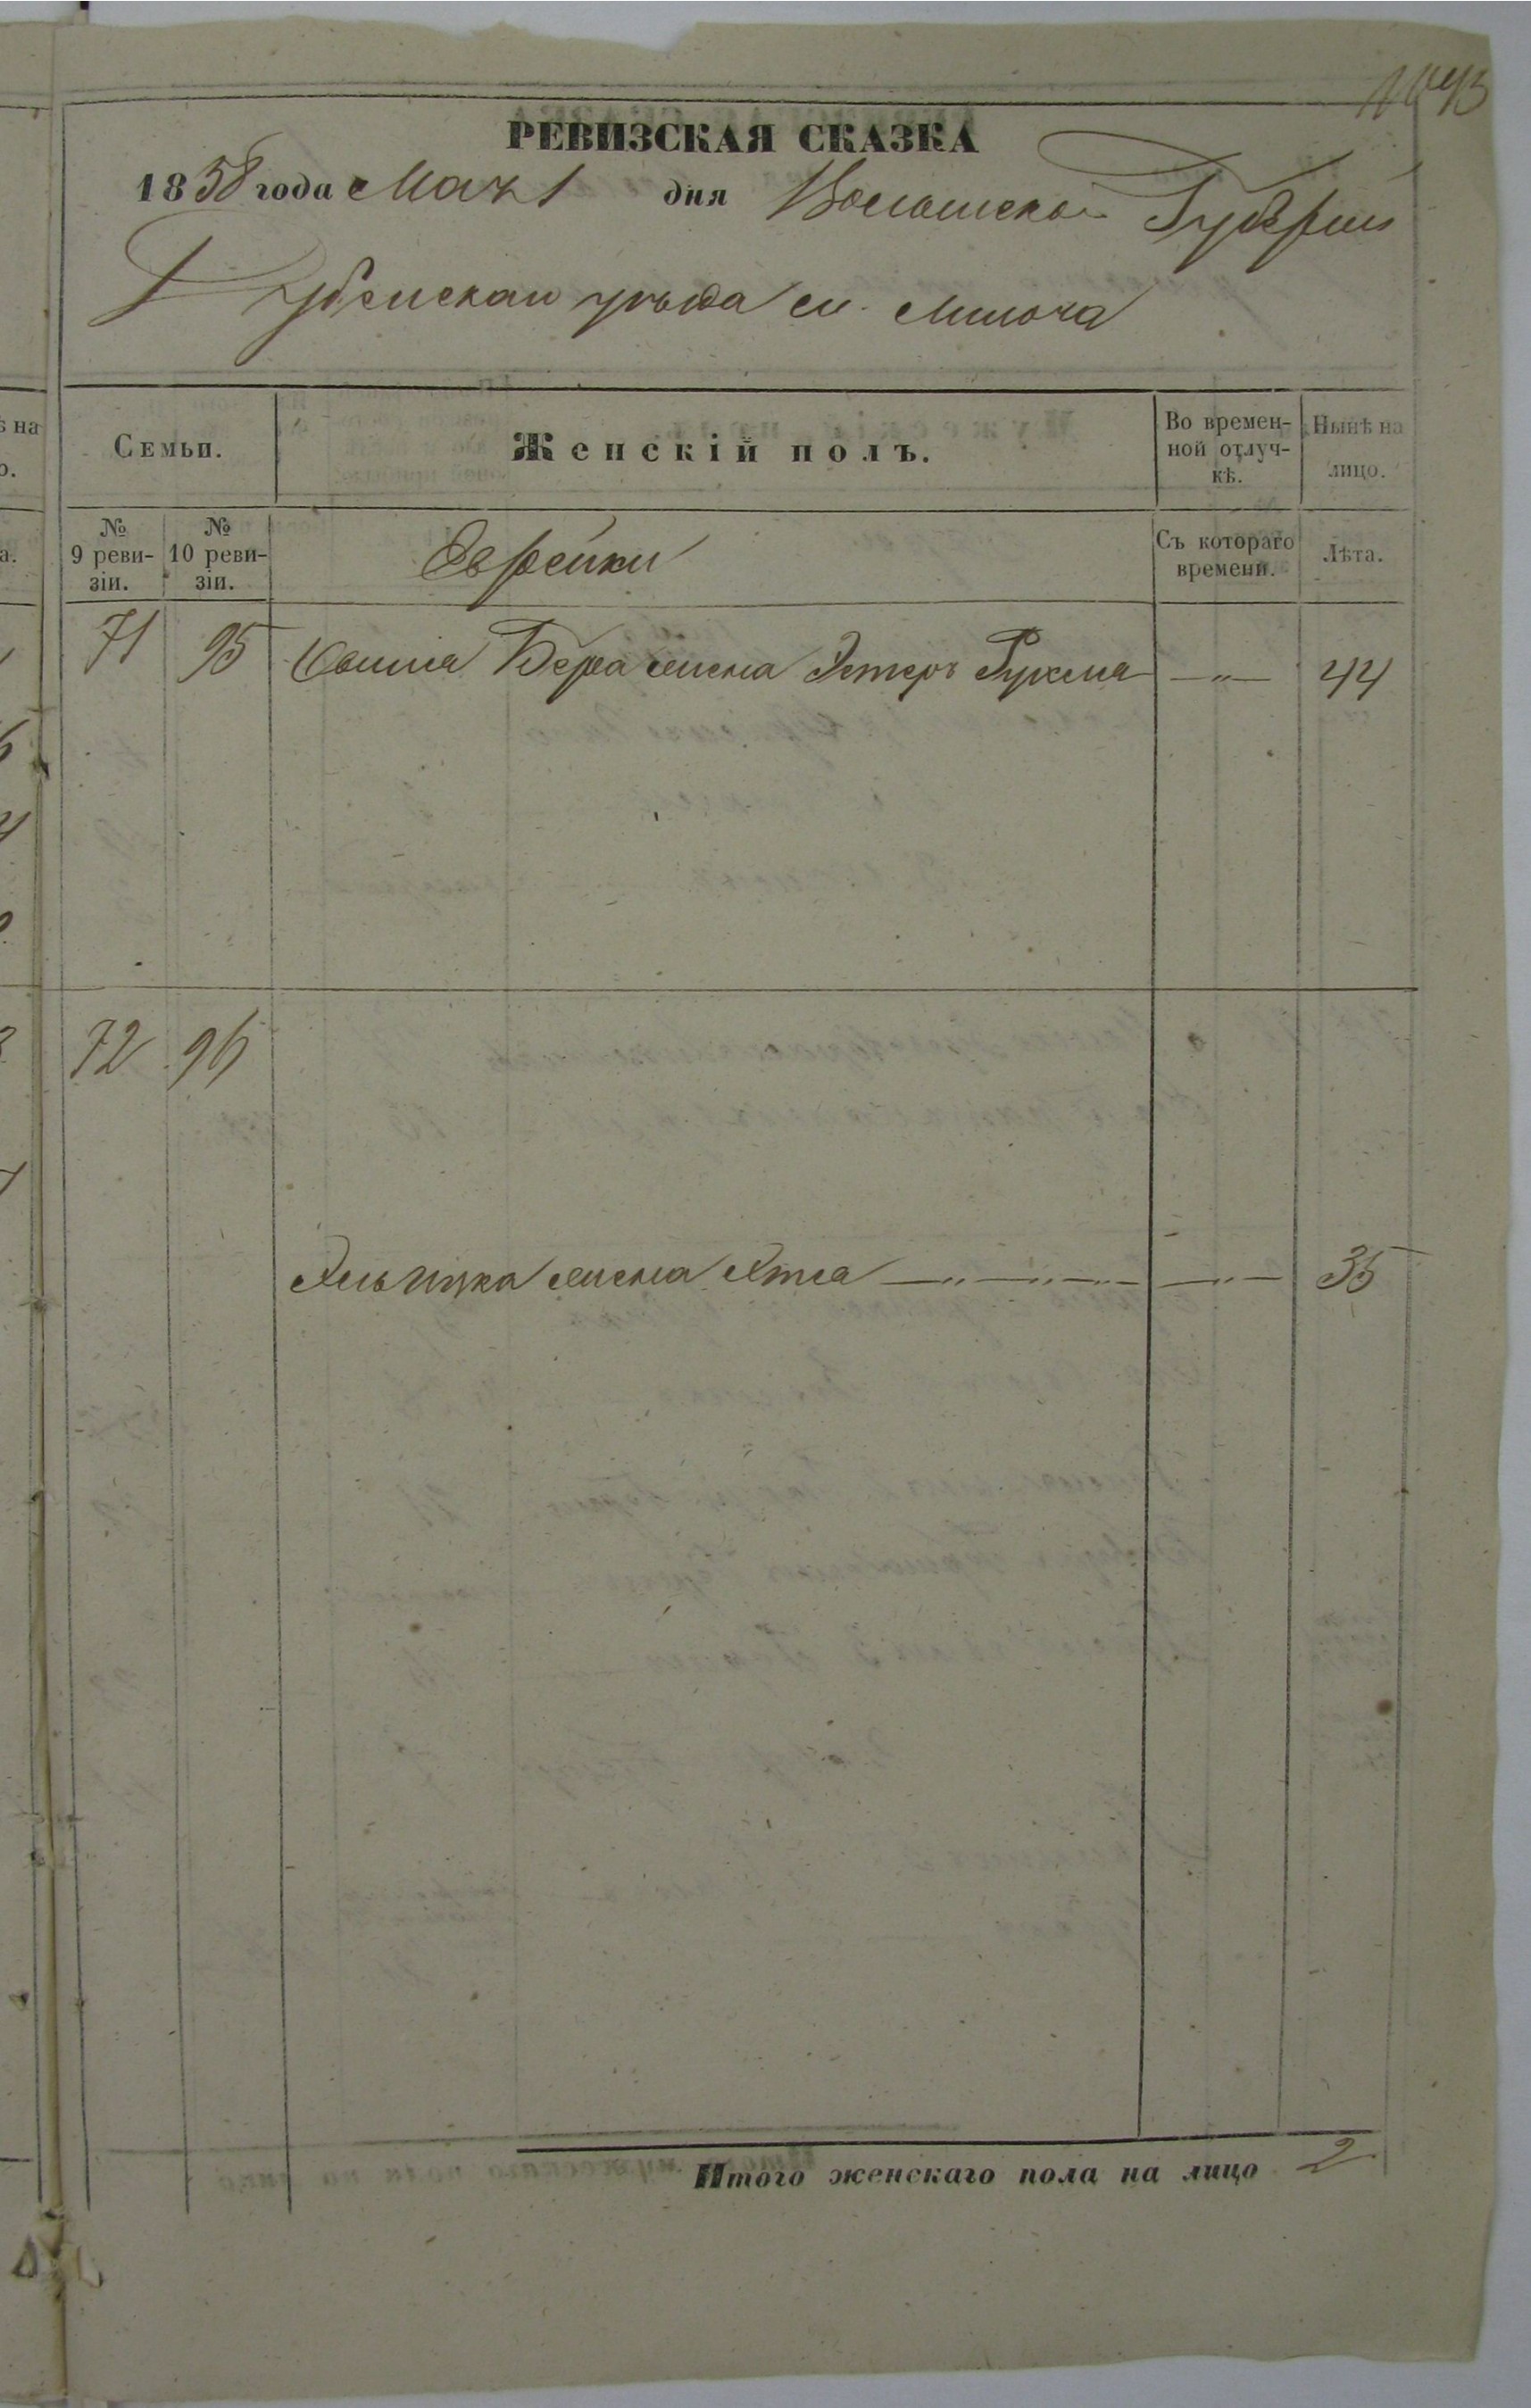 РЕВИЗСКАЯ СКАЗКА
1858 года Мая 1 дня Волынской Губернии
Дубенскаи уѣзда м. Млинова
Семьи.
Женскій полъ.
Во времен-
ной отлуч-
кѣ.
Нынѣ на
лицо.
№
9 реви-
зіи.
№
10 реви-
зіи.
Еврейки
Съ котораго
времени.
Лѣта.
71 95 Бера жена Эстеръ Рухля —〃— 44
72 96
Эль Ицка жена —〃—〃—〃— —〃— 35
Итого женскаго пола на лицо 2